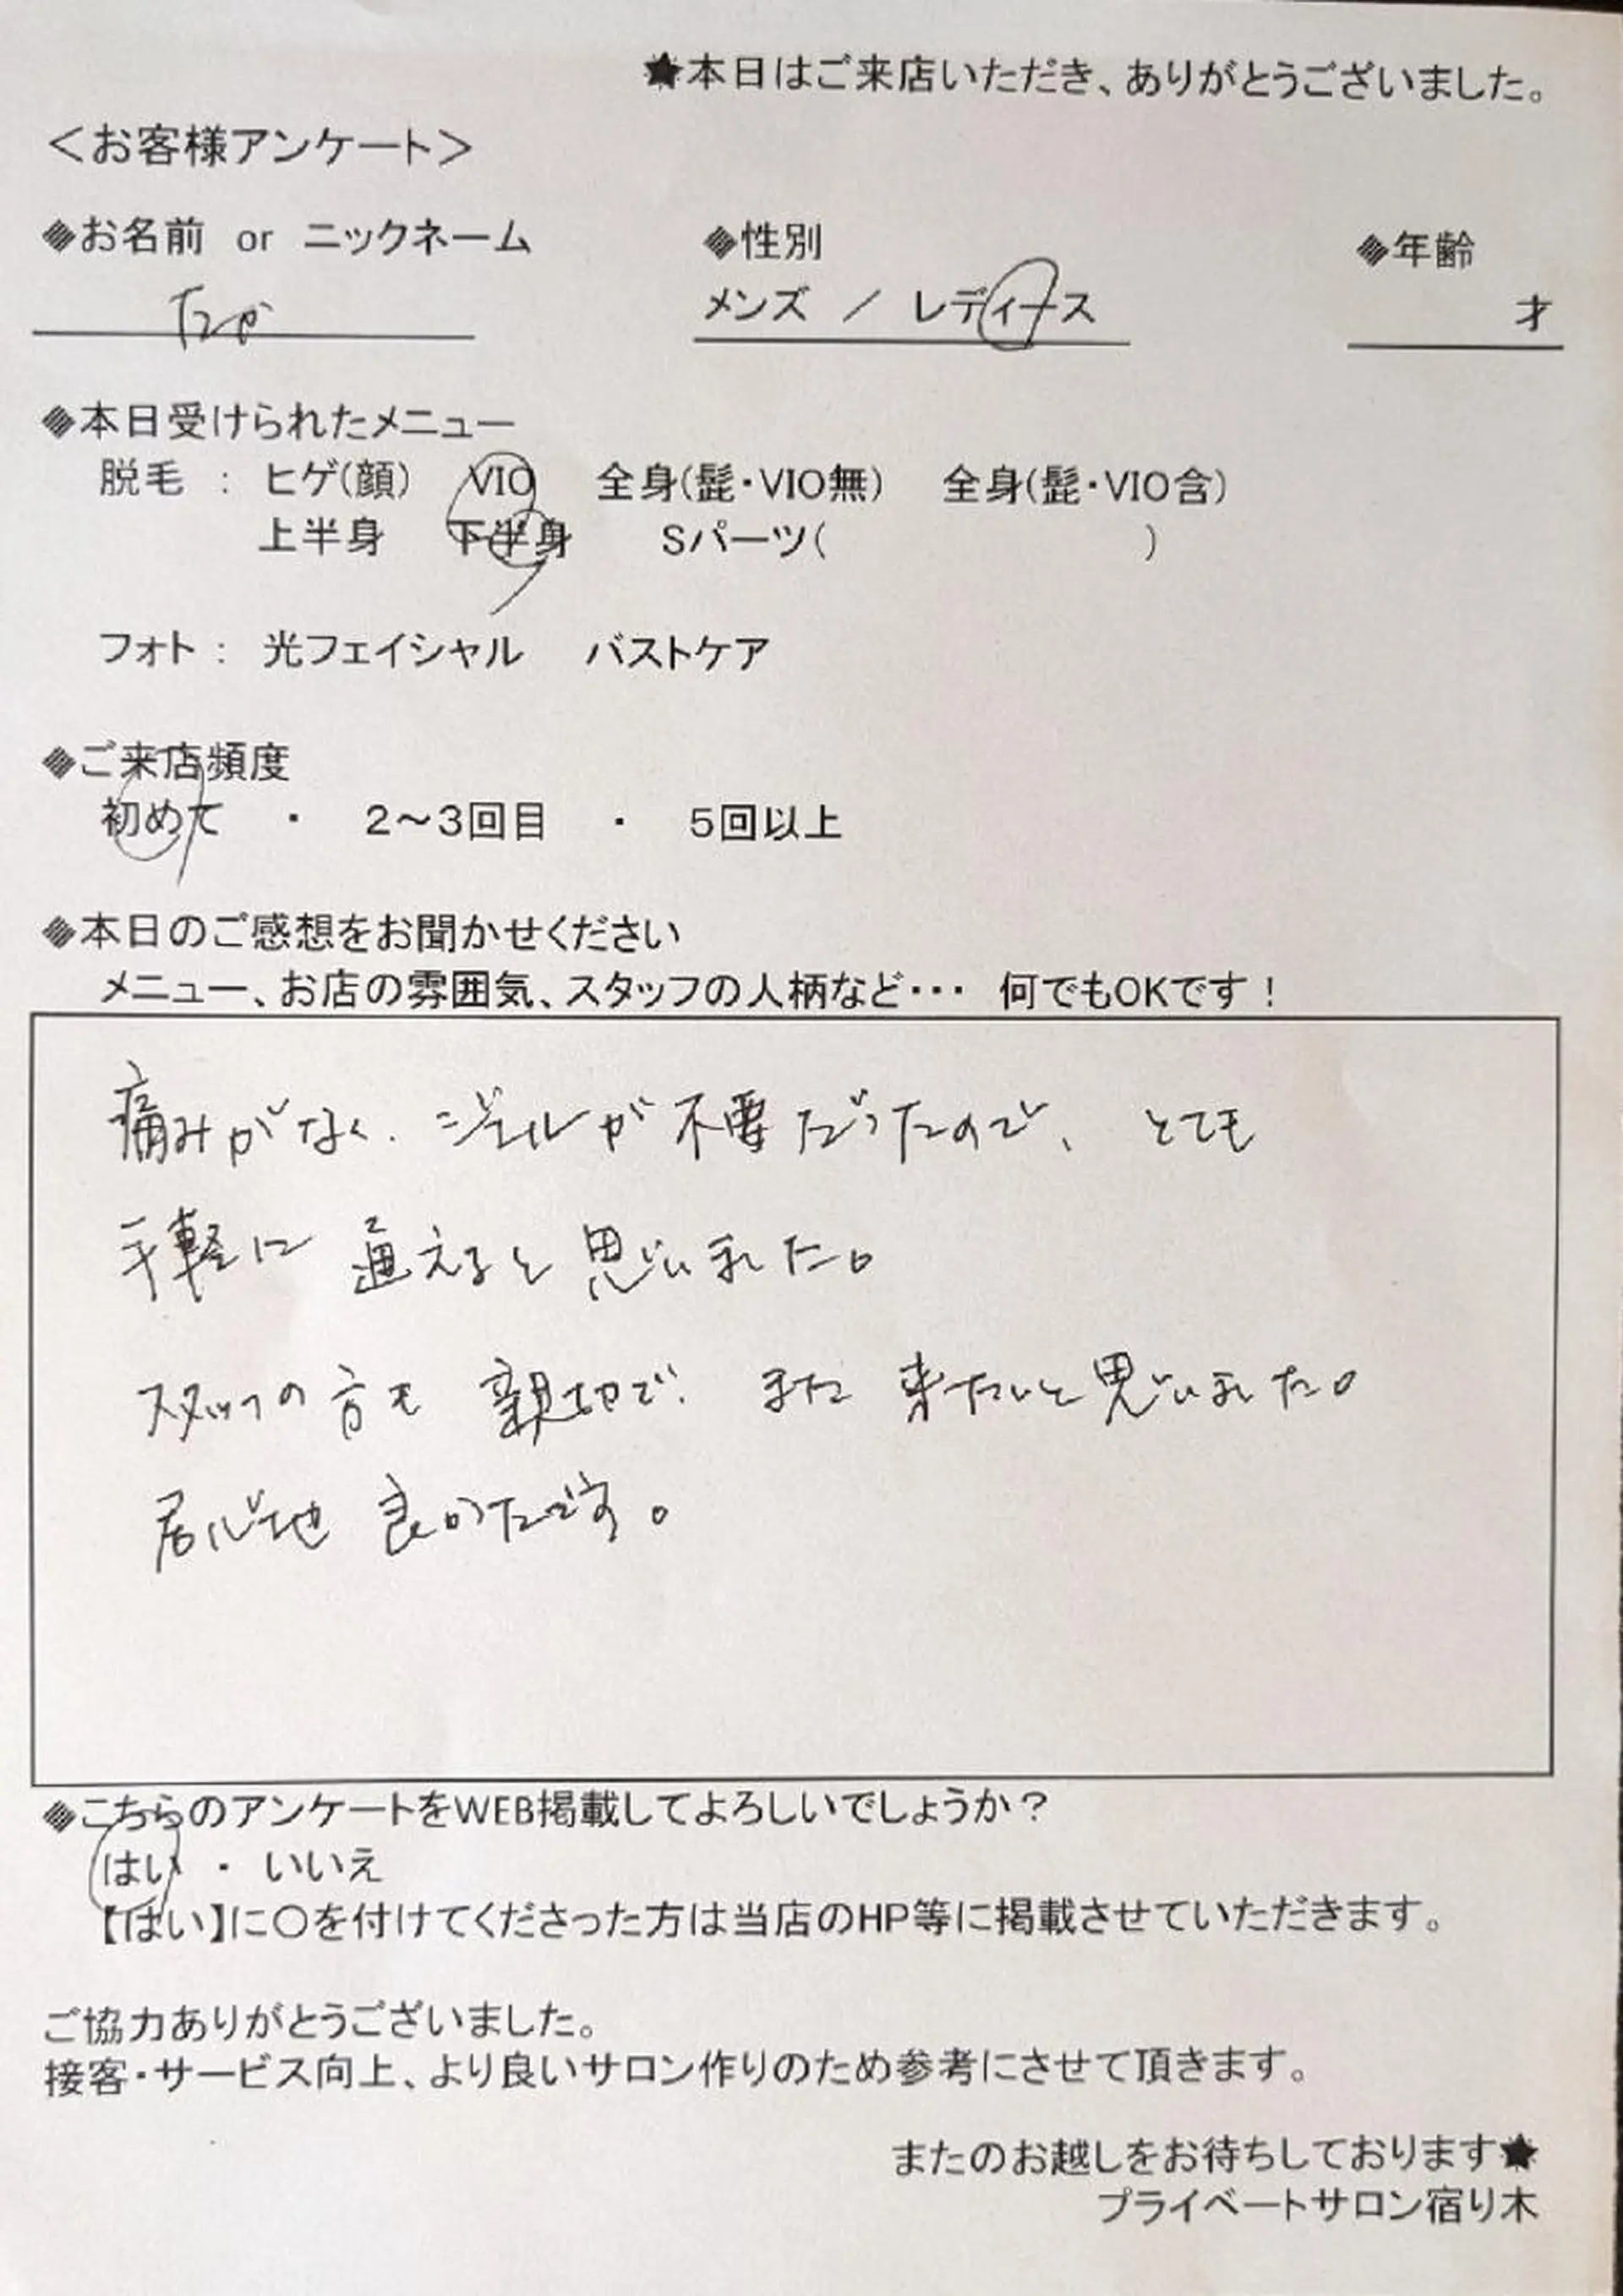 ★本日はご来店いただき、ありがとうございました。
＜お客様アンケート＞
◆お名前 or ニックネーム ◆性別 ◆年齢
たか メンズ ／ レディース 才
◆本日受けられたメニュー
脱毛 ： ヒゲ(顔) VIO 全身(髭・VIO無) 全身(髭・VIO含)
上半身 下半身 Sパーツ( )
フォト ： 光フェイシャル バストケア
◆ご来店頻度
初めて ・ 2～3回目 ・ 5回以上
◆本日のご感想をお聞かせください
メニュー、お店の雰囲気、スタッフの人柄など・・・ 何でもOKです！
痛みがなく、ジェルが不要だったので、とても
手軽に通えると思いました。
スタッフの方も親切で、また来たいと思いました。
居心地良かったです。
◆こちらのアンケートをWEB掲載してよろしいでしょうか？
はい ・ いいえ
【はい】に〇を付けてくださった方は当店のHP等に掲載させていただきます。
ご協力ありがとうございました。
接客・サービス向上、より良いサロン作りのため参考にさせて頂きます。
またのお越しをお待ちしております★
プライベートサロン宿り木